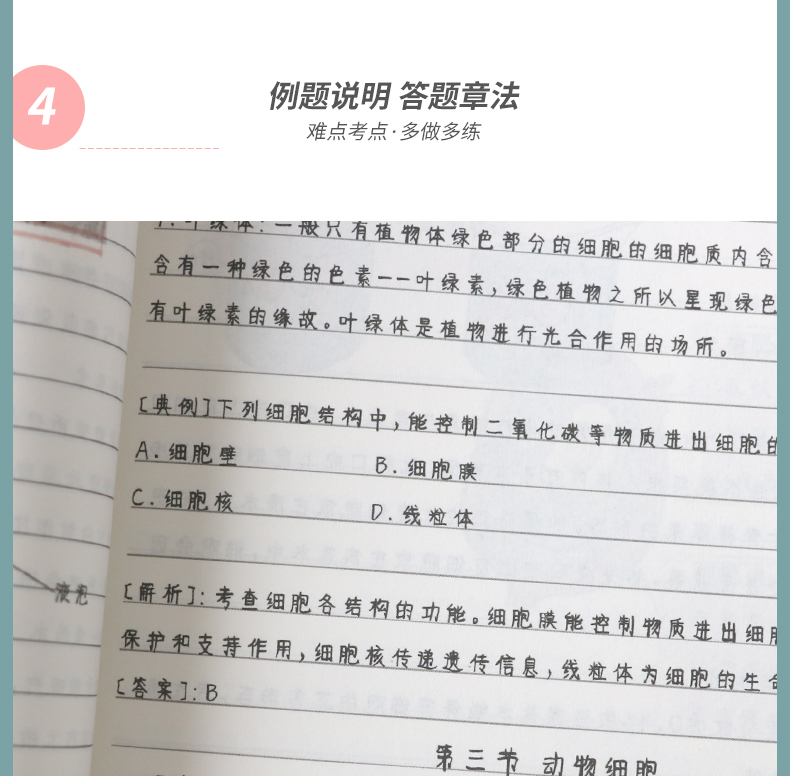 4
例题说明 答题章法
难点考点·多做多练
叶绿体:一般只有植物体绿色部分的细胞的细胞质内含
含有一种绿色的色素——叶绿素,绿色植物之所以呈现绿色
有叶绿素的缘故。叶绿体是植物进行光合作用的场所。
[典例]下列细胞结构中,能控制二氧化碳等物质进出细胞的
A.细胞壁
B.细胞膜
C.细胞核
D.线粒体
液泡
[解析]:考查细胞各结构的功能。细胞膜能控制物质进出细胞
保护和支持作用,细胞核传递遗传信息,线粒体为细胞的生命
[答案]:B
第三节 动物细胞